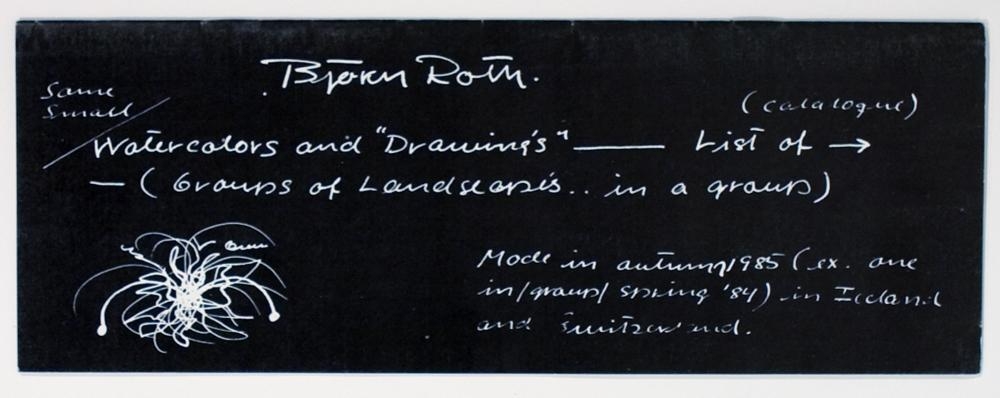 Björn Roth.
Same
Small
(catalogue)
Watercolors and "Drawing's" —— List of →
— (Groups of Landscape's.. in a group)
Made in autumn 1985 (ex. one
in/group/ spring '84) in Iceland
and Switzerland.